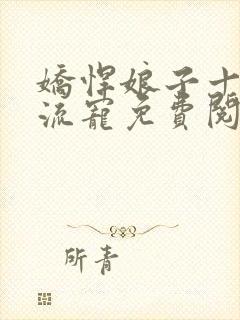 嬌悍娘子十
流寵免費閱
所青